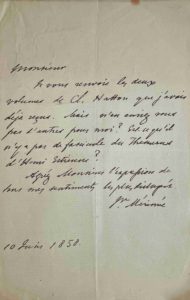 Monsieur
Je vous renvoie les deux
volumes de Ch. Hatton que j'avais
déjà reçus. Mais n'en auriez vous
pas d'autres pour moi? Est-ce qu'il
n'y a pas de fascicule des Thesaurus
d'Henri Estienne?
Agréez Monsieur l'expression de
tous mes sentiments les plus distingués
Pr. Mérimée
10 Juin 1850.